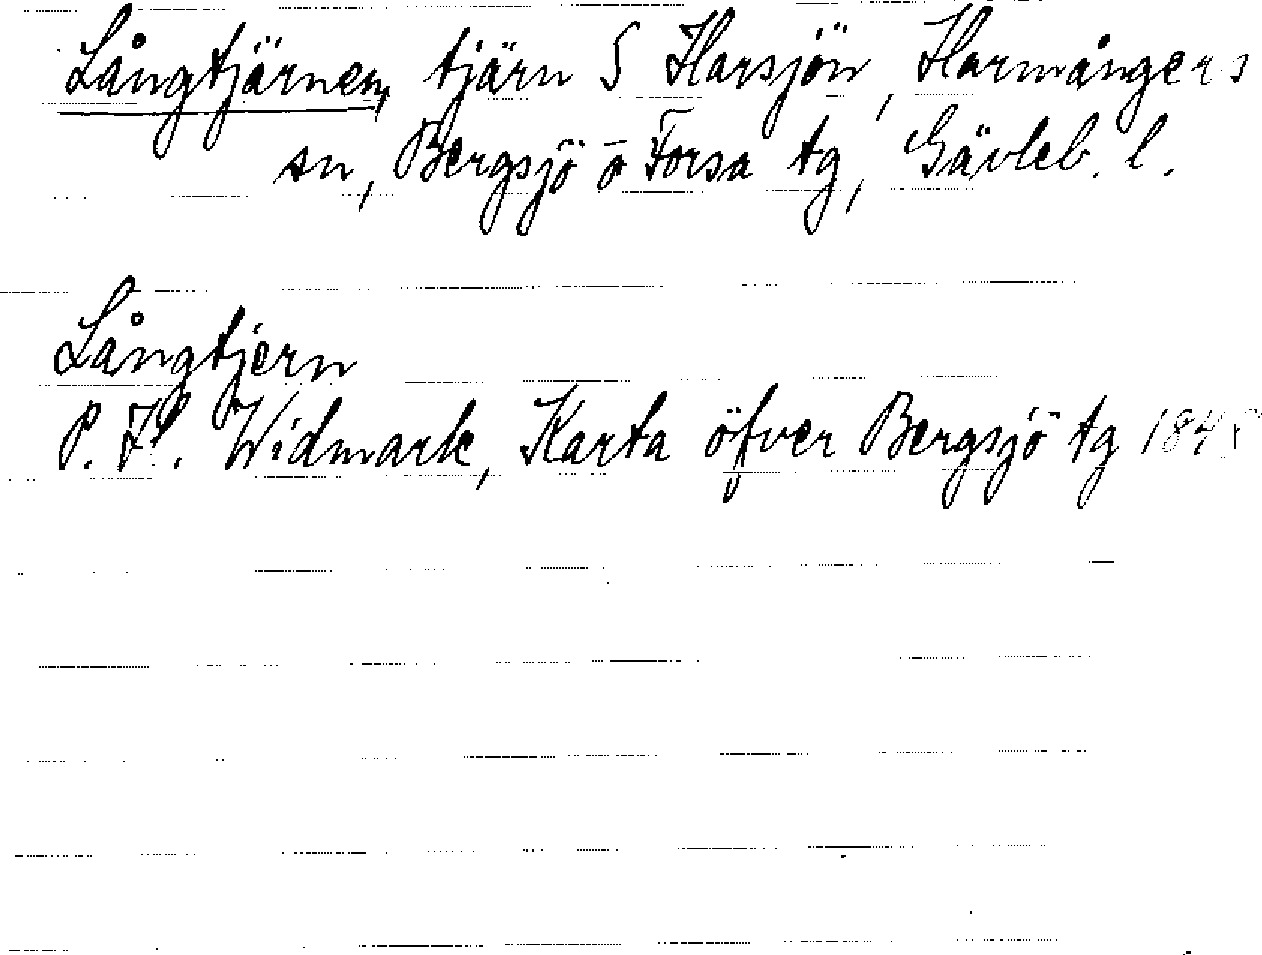 Långtjärnen, tjärn S Harsjön, Harmångers
sn, Bergsjö o Forsa tg, Gävleb. l.
Långtjern
P. H. Widmark, Karta öfver Bergsjö tg